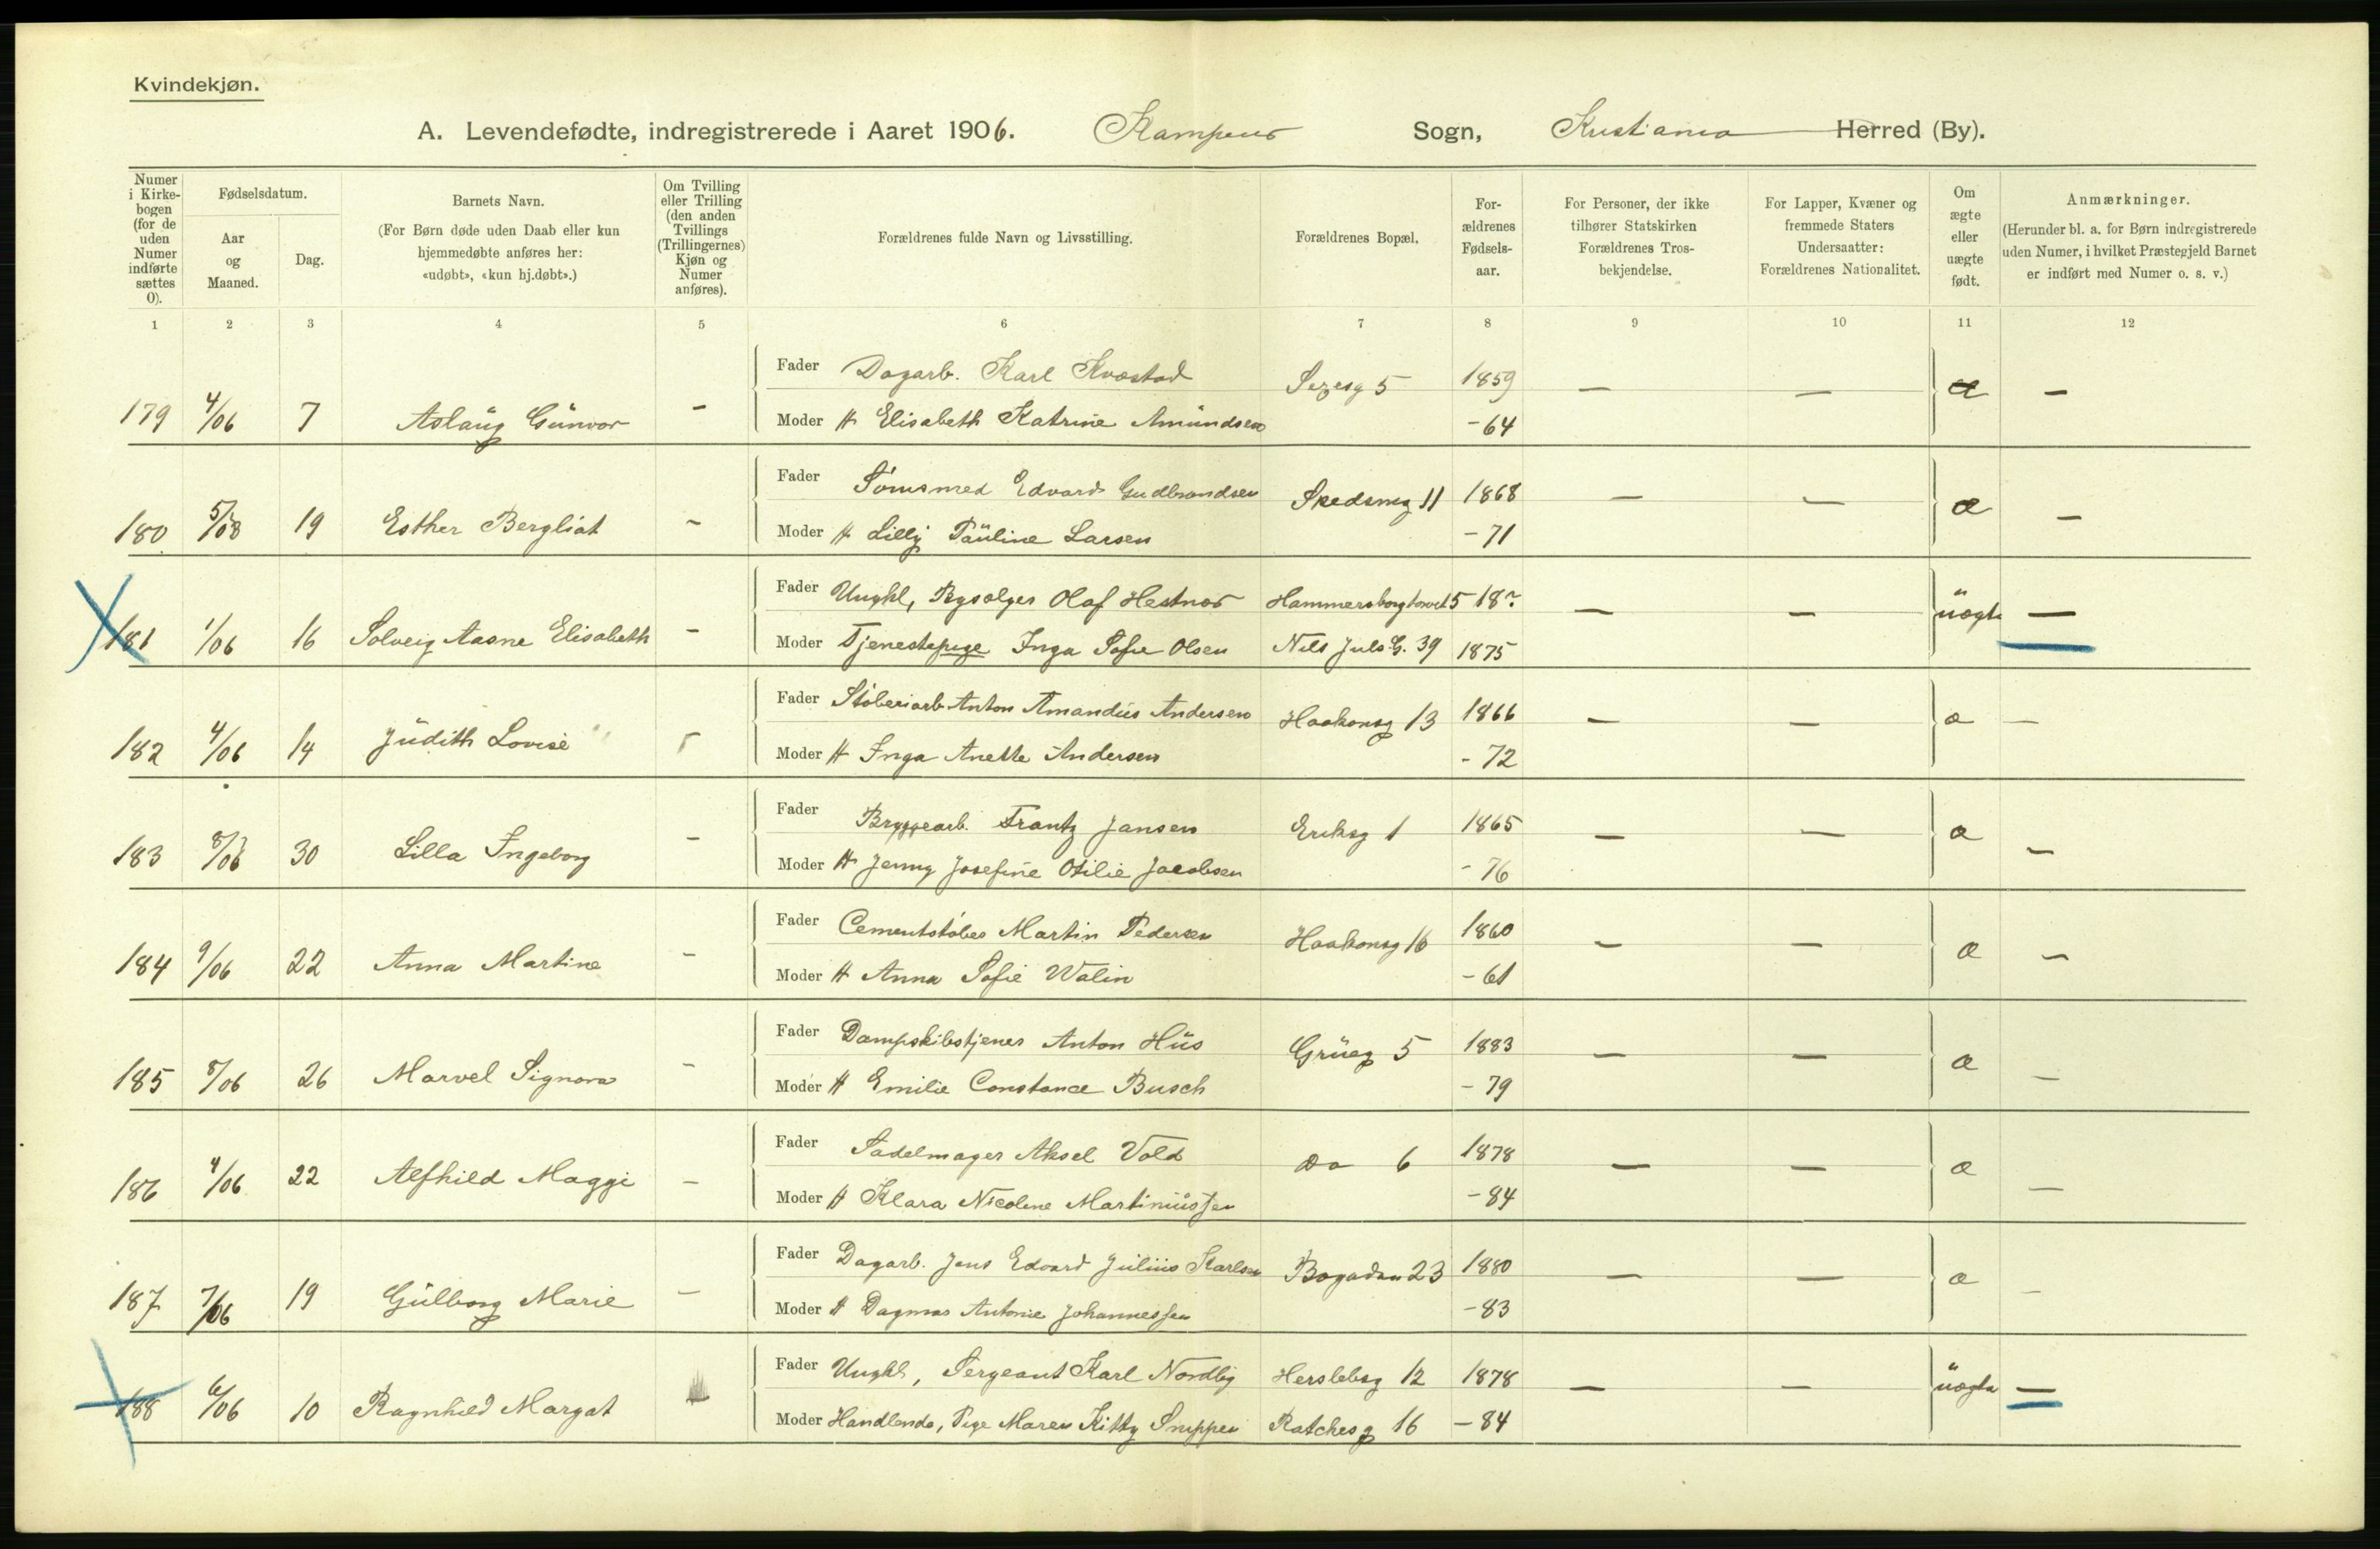 Kvindekjøn.
A. Levendefødte, indregistrerede i Aaret 1906. Kampens Sogn, Kristiania Herred (By).
Numer i Kirkebogen (for de uden Numer indførte sættes 0).
Fødselsdatum.
Aar og Maaned.
Dag.
Barnets Navn.
(For Børn døde uden Daab eller kun hjemmedøbte anføres her: «udøbt», «kun hj.døbt».)
Om Tvilling eller Trilling (den anden Tvillings (Trillingernes) Kjøn og Numer anføres).
Forældrenes fulde Navn og Livsstilling.
Forældrenes Bopæl.
Forældrenes Fødselsaar.
For Personer, der ikke tilhører Statskirken Forældrenes Trosbekjendelse.
For Lapper, Kvæner og fremmede Staters Undersaatter: Forældrenes Nationalitet.
Om ægte eller uægte født.
Anmærkninger.
(Herunder bl. a. for Børn indregistrerede uden Numer, i hvilket Præstegjeld Barnet er indført med Numer o. s. v.)
1 2 3 4 5 6 7 8 9 10 11 12
Fader Dagarb. Karl Kvæstad 1859 — — æ —
179 4/06 7 Aslaug Gunvor - Moder H Elisabeth Katrine Amundsen -64
Fader Edvard Gudbrandsen Skedsmog 11 1868 — — æ —
180 19 Esther Bergliot - Moder H Lilly Pauline Larsen -71
Fader Ungkl, Bysælger Olaf Hestnæs Hammersborgtorvet 5 18? — — uægte —
181 1/06 16 Solveig Aasne Elisabeth - Moder Tjenestepige Inga Sofie Olsen Nils Juls G. 39 1875
Fader Støberiarb Anton Amandus Andersen Haakonsg 13 1866 — — æ —
182 4/06 14 Judith Lovise - Moder H Inga Anette Andersen -72
Fader Bryggearb. Frantz Jansen Eriksg 1 1865 — — æ —
183 8/06 30 Lilla Ingeborg - Moder H Jenny Josefine Otilie Jacobsen -76
Fader Cementstøber Martin Pedersen Haakonsg 16 1860 — — æ —
184 9/06 22 Anna Martine - Moder H Anna Sofie Walin -61
Fader Dampskibstjener Anton Hus Grüeg 5 1883 — — æ —
185 8/06 26 Marvel Signora - Moder H Emilie Constance Busch -79
Fader Sadelmager Aksel Vold Do 6 1878 — — æ —
186 4/06 22 Alfhild Maggi - Moder H Klara Nicoline Martinussen -84
Fader Dagarb. Jens Edvard Julius Karlsen Bogaden 23 1880 — — æ —
187 7/06 19 Gulborg Marie - Moder H Dagmar Antonie Johannessen -83
Fader Ungkl, Sergeant Karl Nordby Herslebsg 12 1878 — — uægte —
188 6/06 10 Ragnhild Margot Moder Handlende, Pige Maren Kitty Snippen Ratchesg 16 -84